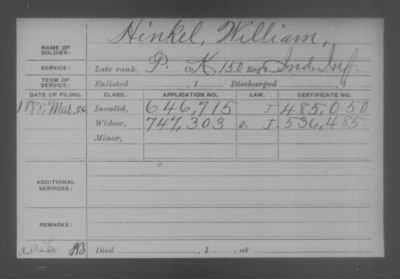 Hinkel, William,
NAME OF SOLDIER:
SERVICE: Late rank, P. Co. K, 150 Reg't Ind. Inf.
TERM OF SERVICE: Enlisted , 1 Discharged , 1
DATE OF FILING. CLASS. APPLICATION NO. LAW. CERTIFICATE NO.
1888, Mar. 26 Invalid, 646,715 J. 485,050
Widow, 747,303 J. 536,485.
Minor,
ADDITIONAL SERVICES:
REMARKS:
Died , 1 , at